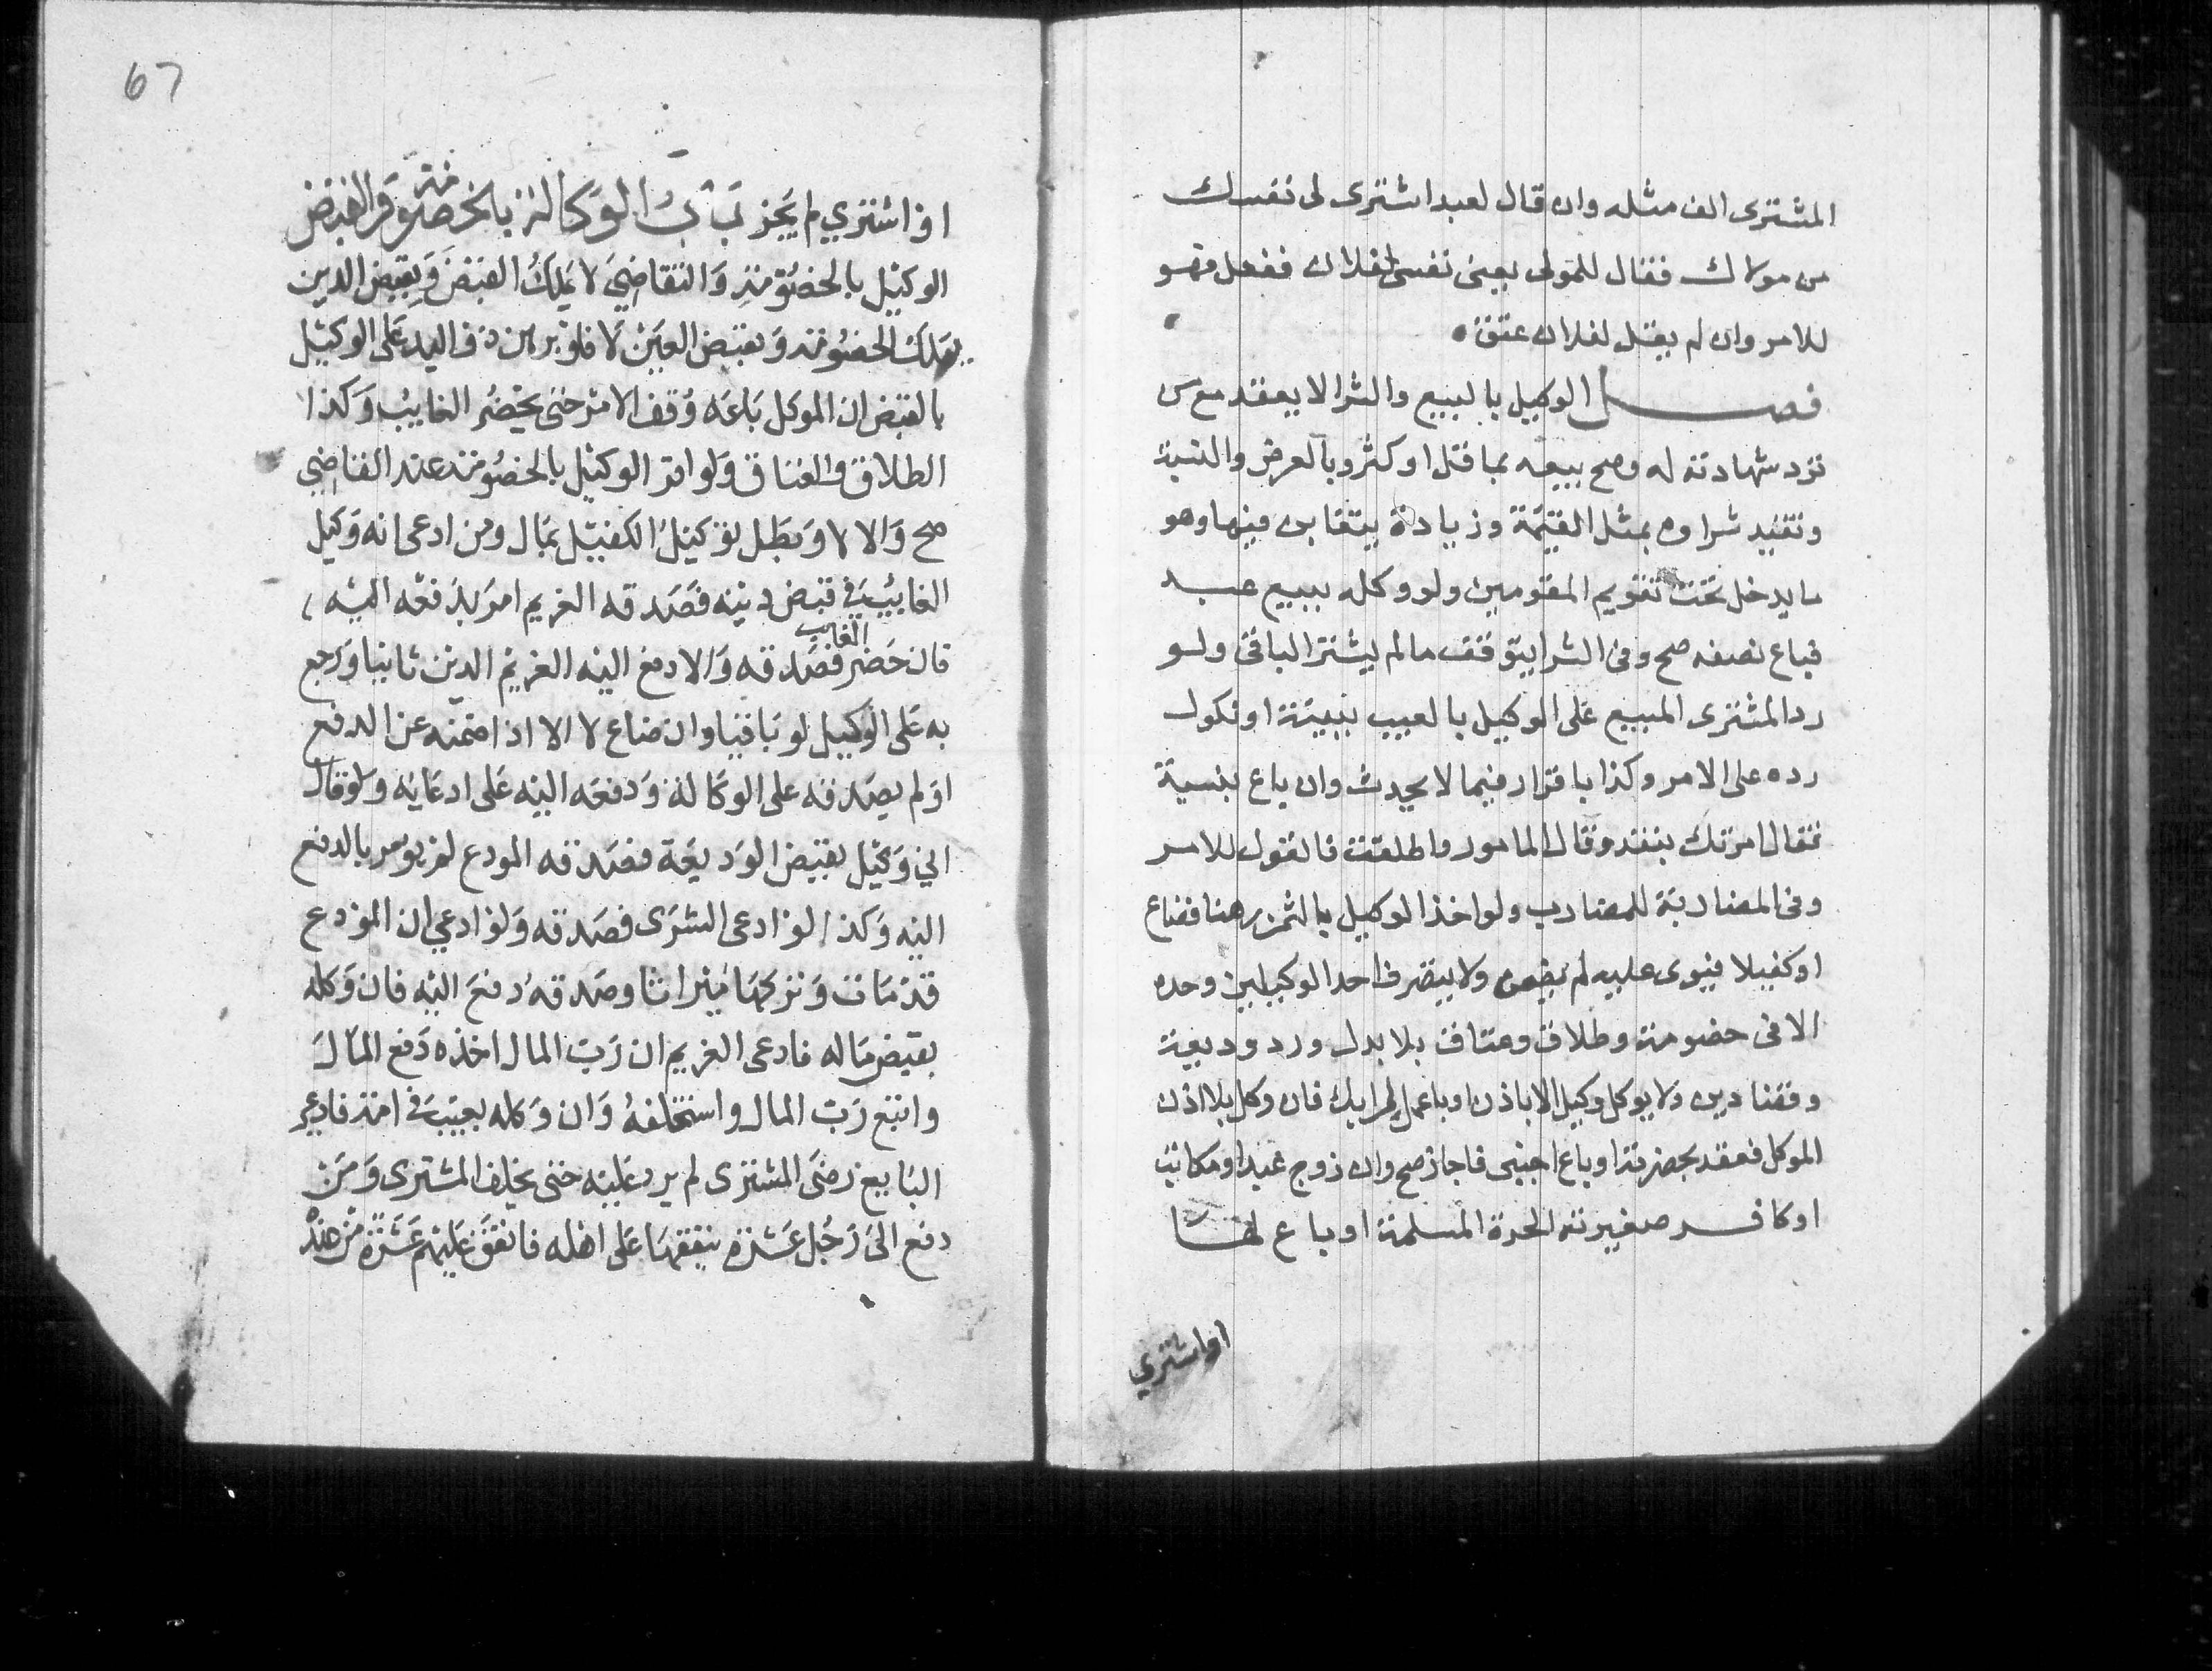 المشترى الف مثله وان قال لعبد اشترى لى نفسك
من مولاك فقال للمولى بعنى نفسى لفلان ففعل فهو
للامر وان لم يقل لفلان عتق
فصل الوكيل بالبيع والشرا لا يعقد مع من
ترد شهادته له وصح بيعه بما قل او كثر وبالعرض والنسية
وتقيد شراوه بمثل القيمة وزيادة يتغابن فيها وهو
ما يدخل تحت تقويم المقومين ولو وكله ببيع عبد
فباع نصفه صح وفى الشرا يتوقف ما لم يشتر الباقى ولو
رد المشترى المبيع على الوكيل بالعيب ببينة او نكول
رده على الامر وكذا باقرار فيما لا يحدث وان باع بنسية
فقال امرتك بنقد وقال المامور اطلقت فالقول للامر
وفى المضاربة للمضارب ولو اخذ الوكيل بالثمن رهنا فضاع
او كفيلا فتوى عليه لم يضمن ولا يتصرف احد الوكيلين وحده
الا فى خصومة وطلاق وعتاق بلا بدل ورد وديعة
وقضا دين ولا يوكل وكيل الا باذن او باعمل برايك فان وكل بلا اذن
الموكل فعقد بحضرته او باع اجنبى فاجاز صح وان زوج عبد او مكاتب
او كافر صغيرته الحرة المسلمة او باع لها
او اشتري
67
او اشتري لم يجز باب الوكالة بالخصومة والقبض
الوكيل بالخصومة والتقاضي لا يملك القبض وبقبض الدين
يملك الخصومة وبقبض العين لا فلو برهن ذو اليد على الوكيل
بالقبض ان الموكل باعه وقف الامر حتى يحضر الغايب وكذا
الطلاق والعتاق ولو اقر الوكيل بالخصومة عند القاضي
صح والا لا وبطل توكيل الكفيل بمال ومن ادعى انه وكيل
الغايب في قبض دينه فصدقه الغريم امر بدفعه اليه
فان حضر الغايب فصدقه والا دفع اليه الغريم الدين ثانيا ورجع
به على الوكيل لو باقيا وان ضاع لا الا اذا ضمنه عن الدفع
او لم يصدقه على الوكالة ودفعه اليه على ادعايه ولو قال
اني وكيل بقبض الوديعة فصدقه المودع لم يومر بالدفع
اليه وكذا لو ادعى الشرى فصدقه ولو ادعي ان المودع
قد مات وتركها ميراثا وصدقه دفع اليه فان وكله
بقبض ماله فادعى الغريم ان رب المال اخذه دفع المال
واتبع رب المال واستحلفه وان وكله بعيب في امة فادعى
البايع رضى المشترى لم يرد عليه حتى يحلف المشترى ومن
دفع الى رجل عشرة ينفقها على اهله فانفق عليهم عشرة من عنده